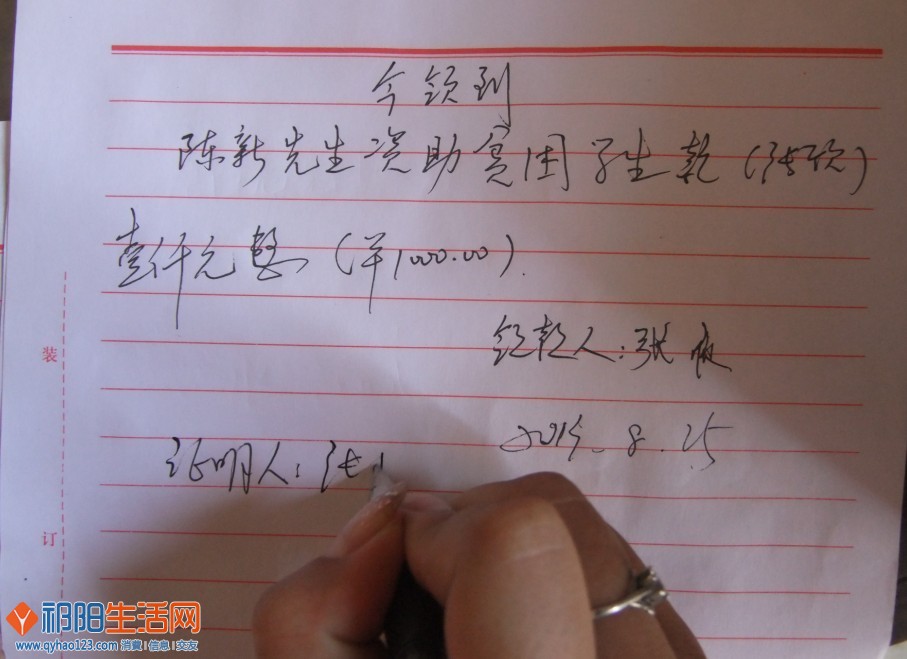 今领到
陈新先生资助贫困学生款（张欣）
壹仟元整（洋1000.00）.
领款人：张
2015.8.25
证明人：张
装
订
祁阳生活网
www.qyhao123.com 消费|信息|交友